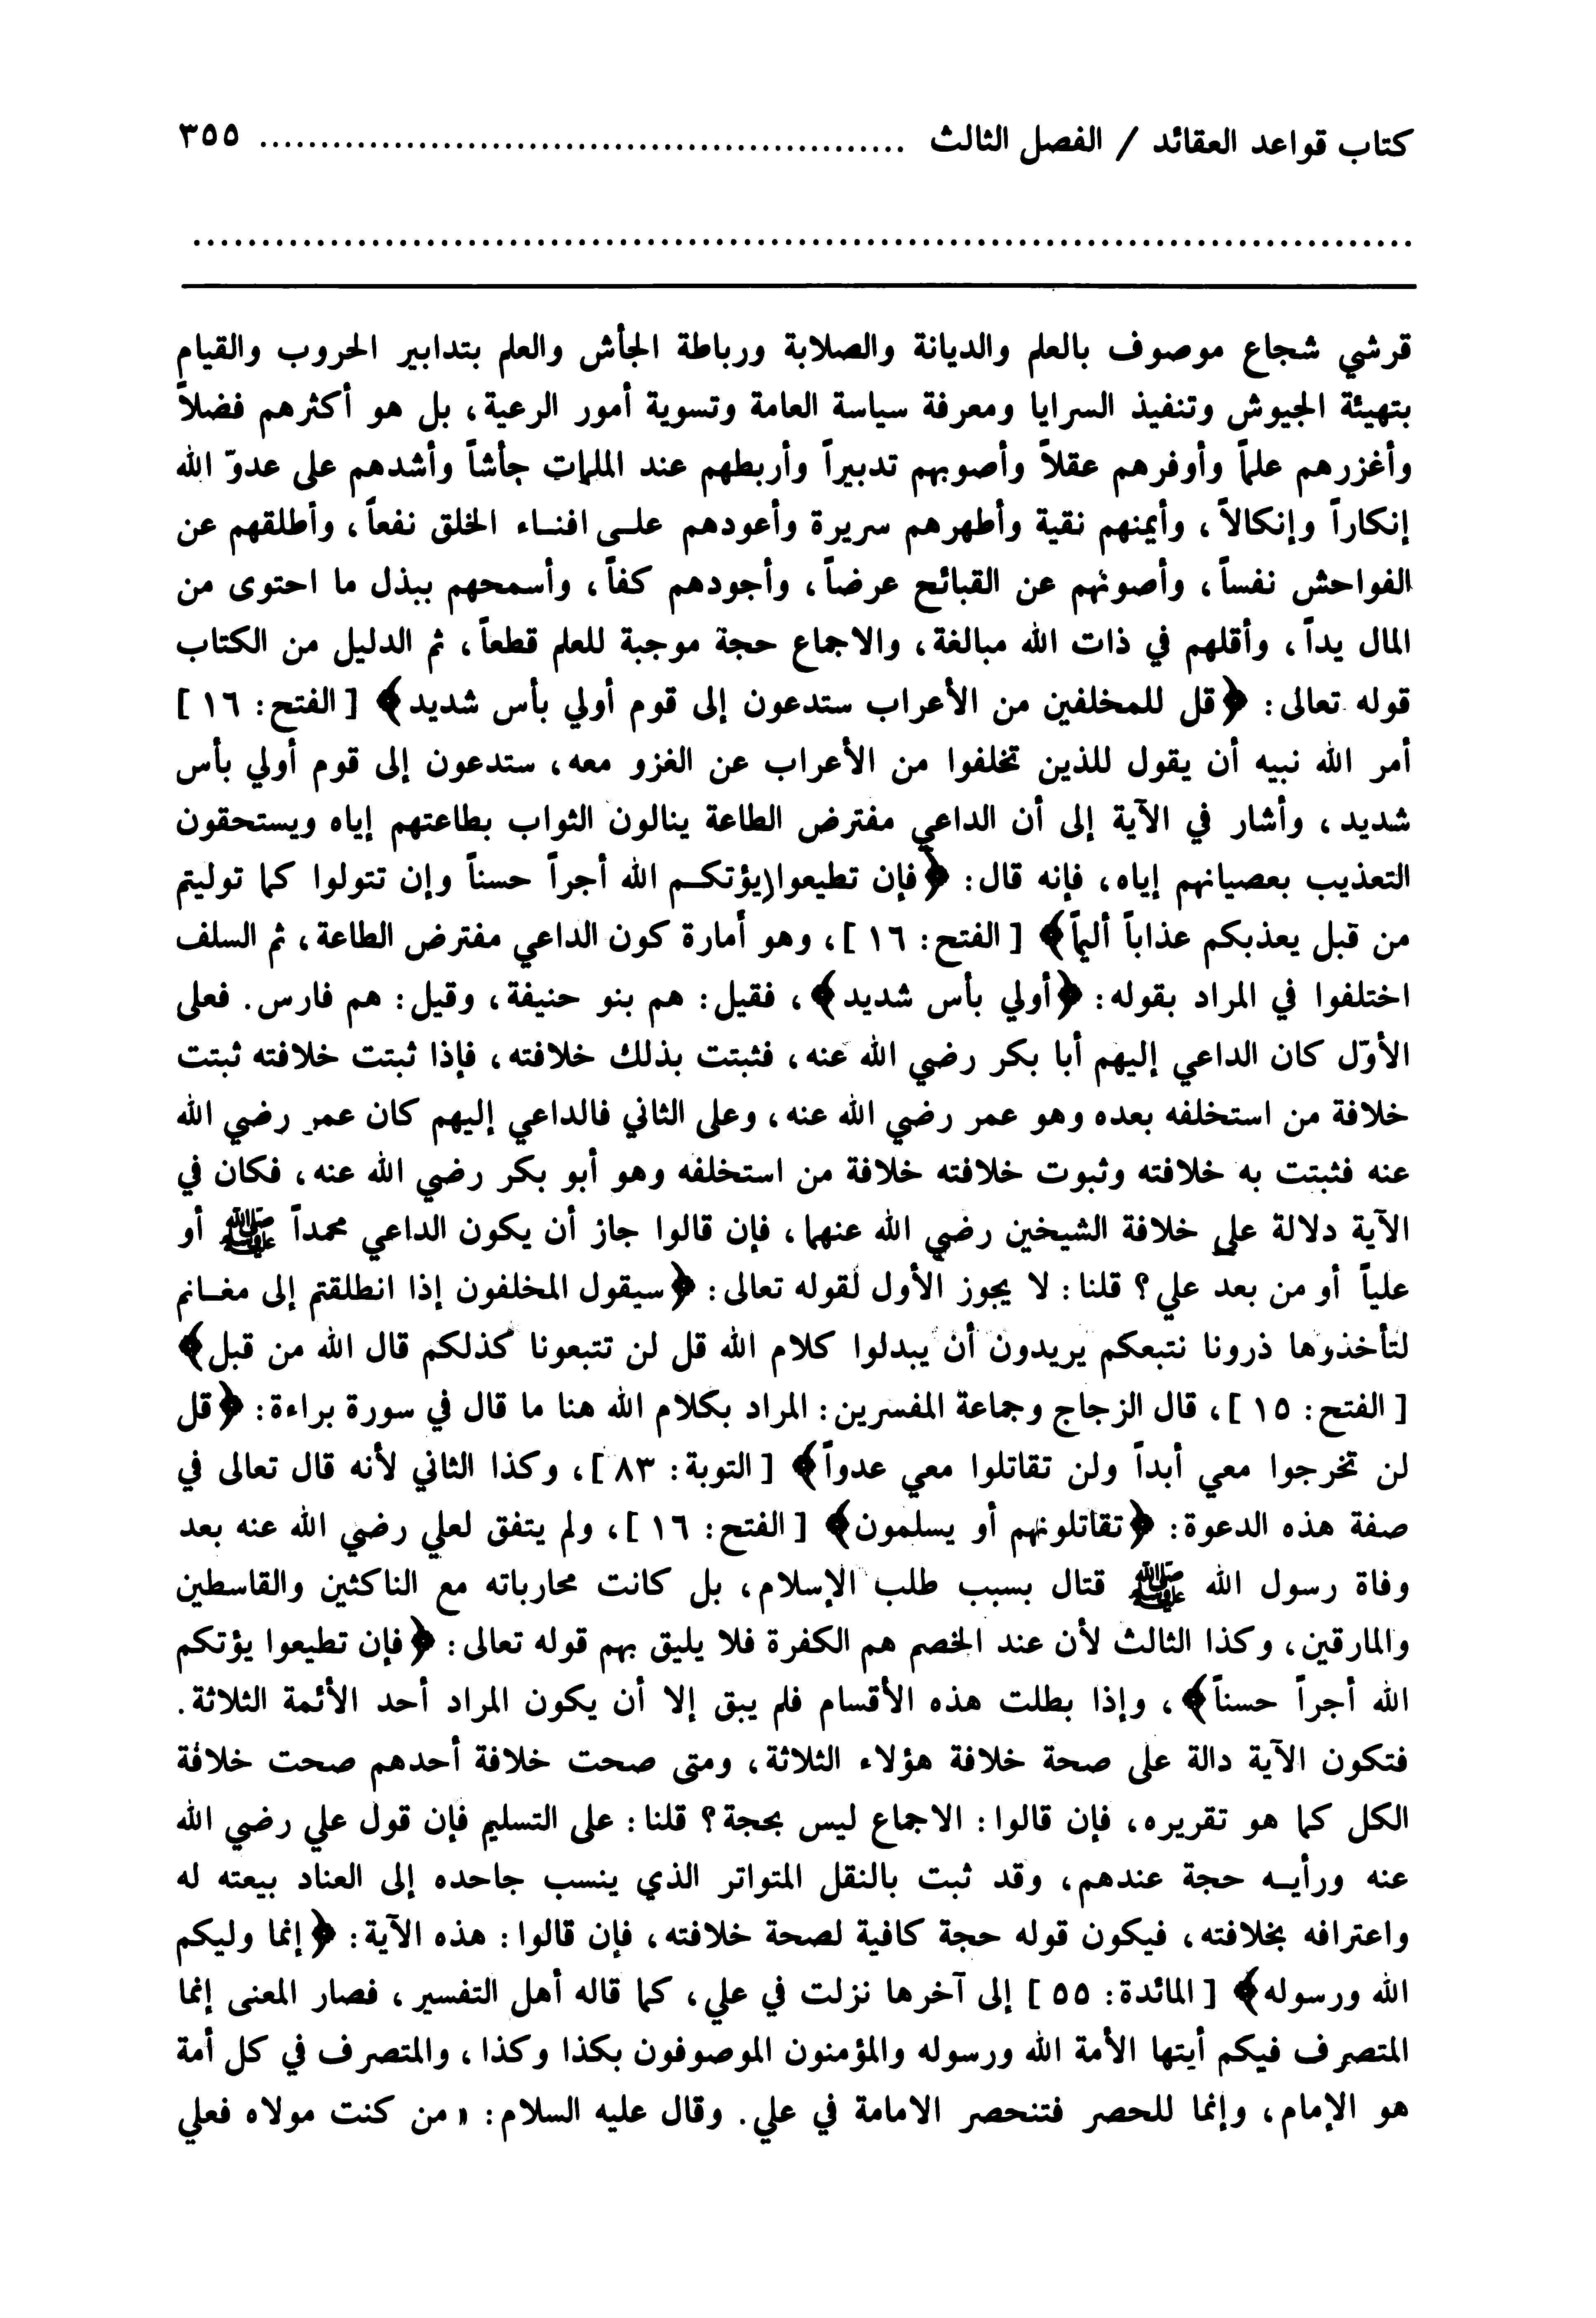 كتاب قواعد العقائد / الفصل الثالث ...................................................... ٣٥٥
..........................................................................................
قرشي شجاع موصوف بالعلم والديانة والصلابة ورباطة الجأش والعلم بتدابير الحروب والقيام
بتهيئة الجيوش وتنفيذ السرايا ومعرفة سياسة العامة وتسوية أمور الرعية، بل هو أكثرهم فضلاً
وأغزرهم علماً وأوفرهم عقلاً وأصوبهم تدبيراً وأربطهم عند الملمات جأشاً وأشدهم على عدوّ الله
إنكاراً وإنكالاً، وأيمنهم نقية وأطهرهم سريرة وأعودهم علـى افنـاء الخلق نفعاً، وأطلقهم عن
الفواحش نفساً، وأصونهم عن القبائح عرضاً، وأجودهم كفاً، وأسمحهم ببذل ما احتوى من
المال يداً، وأقلهم في ذات الله مبالغة، والاجماع حجة موجبة للعلم قطعاً، ثم الدليل من الكتاب
قوله تعالى: ﴿قل للمخلفين من الأعراب ستدعون إلى قوم أولي بأس شديد﴾ [الفتح: ١٦]
أمر الله نبيه أن يقول للذين تخلفوا من الأعراب عن الغزو معه، ستدعون إلى قوم أولي بأس
شديد، وأشار في الآية إلى أن الداعي مفترض الطاعة ينالون الثواب بطاعتهم إياه ويستحقون
التعذيب بعصيانهم إياه، فإنه قال: ﴿فإن تطيعوا يؤتكـم الله أجراً حسناً وإن تتولوا كما توليتم
من قبل يعذبكم عذاباً أليماً﴾ [الفتح: ١٦]، وهو أمارة كون الداعي مفترض الطاعة، ثم السلف
اختلفوا في المراد بقوله: ﴿أولي بأس شديد﴾، فقيل: هم بنو حنيفة، وقيل: هم فارس. فعلى
الأوّل كان الداعي إليهم أبا بكر رضي الله عنه، فثبتت بذلك خلافته، فإذا ثبتت خلافته ثبتت
خلافة من استخلفه بعده وهو عمر رضي الله عنه، وعلى الثاني فالداعي إليهم كان عمر رضي الله
عنه فثبتت به خلافته وثبوت خلافته خلافة من استخلفه وهو أبو بكر رضي الله عنه، فكان في
الآية دلالة على خلافة الشيخين رضي الله عنهما، فإن قالوا جاز أن يكون الداعي محمداً ﷺ أو
علياً أو من بعد علي؟ قلنا: لا يجوز الأول لقوله تعالى: ﴿سيقول المخلفون إذا انطلقتم إلى مغـانم
لتأخذوها ذرونا نتبعكم يريدون أن يبدلوا كلام الله قل لن تتبعونا كذلكم قال الله من قبل﴾
[الفتح: ١٥]، قال الزجاج وجماعة المفسرين: المراد بكلام الله هنا ما قال في سورة براءة: ﴿قل
لن تخرجوا معي أبداً ولن تقاتلوا معي عدواً﴾ [التوبة: ٨٣]، وكذا الثاني لأنه قال تعالى في
صفة هذه الدعوة: ﴿تقاتلونهم أو يسلمون﴾ [الفتح: ١٦]، ولم يتفق لعلي رضي الله عنه بعد
وفاة رسول الله ﷺ قتال بسبب طلب الإسلام، بل كانت محارباته مع الناكثين والقاسطين
والمارقين، وكذا الثالث لأن عند الخصم هم الكفرة فلا يليق بهم قوله تعالى: ﴿فإن تطيعوا يؤتكم
الله أجراً حسناً﴾، وإذا بطلت هذه الأقسام فلم يبق إلا أن يكون المراد أحد الأئمة الثلاثة.
فتكون الآية دالة على صحة خلافة هؤلاء الثلاثة، ومتى صحت خلافة أحدهم صحت خلافة
الكل كما هو تقريره، فإن قالوا: الاجماع ليس بحجة؟ قلنا: على التسليم فإن قول علي رضي الله
عنه ورأيـه حجة عندهم، وقد ثبت بالنقل المتواتر الذي ينسب جاحده إلى العناد بيعته له
واعترافه بخلافته، فيكون قوله حجة كافية لصحة خلافته، فإن قالوا: هذه الآية: ﴿إنما وليكم
الله ورسوله﴾ [المائدة: ٥٥] إلى آخرها نزلت في علي، كما قاله أهل التفسير، فصار المعنى إنما
المتصرف فيكم أيتها الأمة الله ورسوله والمؤمنون الموصوفون بكذا وكذا، والمتصرف في كل أمة
هو الإمام، وإنما للحصر فتنحصر الامامة في علي. وقال عليه السلام: «من كنت مولاه فعلي